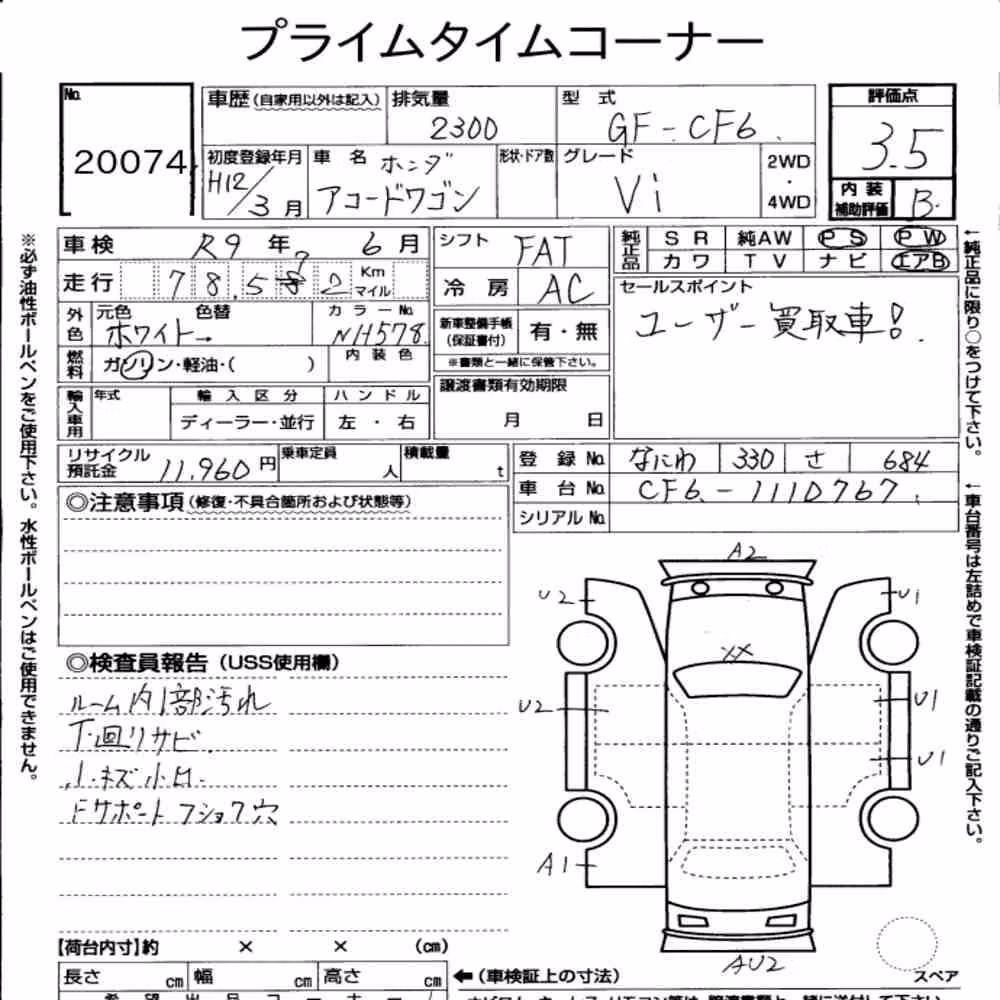 プライムタイムコーナー
No. 20074
車歴(自家用以外は記入) 排気量 2300 型式 GF-CF6 評価点 3.5
初度登録年月 H12/3月 車名 ホンダ アコードワゴン 形状・ドア数 グレード Vi 2WD・4WD 内装補助評価 B
車検 R9年 6月 シフト FAT 純正品 SR 純AW PS PW
走行 78.5 2 Km マイル 冷房 AC カワ TV ナビ エアB
外色 元色 ホワイト→ 色替 カラーNo. NH578 新車整備手帳(保証書付) 有・無 セールスポイント
ユーザー買取車!
※書類と一緒に保管下さい。
燃料 ガソリン・軽油・( ) 内装色 譲渡書類有効期限 月 日
輸入車用 年式 輸入区分 ハンドル
ディーラー・並行 左・右
リサイクル預託金 11,960円 乗車定員 人 積載量 t 登録No. なにわ 330 さ 684
車台No. CF6-1110767
シリアルNo.
◎注意事項(修復・不具合箇所および状態等)
◎検査員報告(USS使用欄)
ルーム内1部汚れ
下回リサビ
小キズ小凹
Fサポート フショク穴
A2
U2 U1
XX
U2 U1
U1
A1
AU2
スペア
【荷台内寸】約 × × (cm)
長さ cm 幅 cm 高さ cm ←(車検証上の寸法)
※必ず油性ボールペンをご使用下さい。水性ボールペンはご使用できません。
←純正品に限り○をつけて下さい。
←車台番号は左詰めで車検証記載の通りご記入下さい。